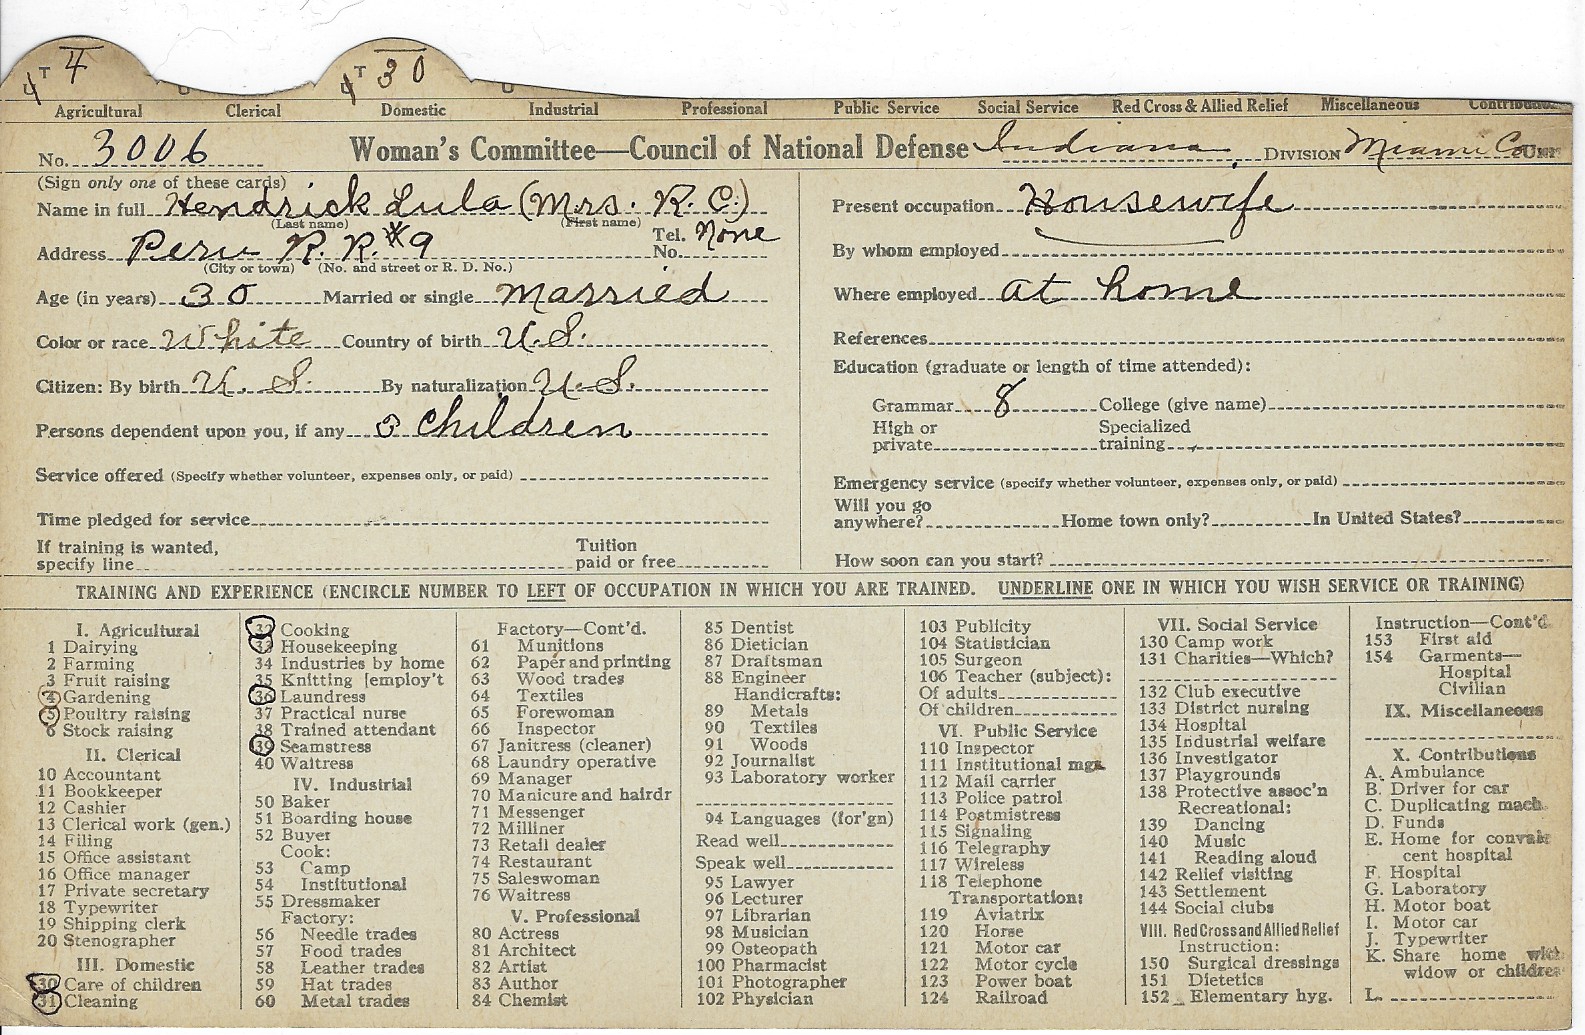 T 4 T 30
Agricultural Clerical Domestic Industrial Professional Public Service Social Service Red Cross & Allied Relief Miscellaneous Contributions
No. 3006 Woman's Committee—Council of National Defense Indiana DIVISION Miami Co.
(Sign only one of these cards)
Name in full Hendrick Lula (Mrs. R. C.)
(Last name) (First name)
Address Peru R. R. #9 Tel. No. None
(City or town) (No. and street or R. D. No.)
Age (in years) 30 Married or single Married
Color or race White Country of birth U.S.
Citizen: By birth U.S. By naturalization U.S.
Persons dependent upon you, if any 3 Children
Service offered (Specify whether volunteer, expenses only, or paid)
Time pledged for service
If training is wanted, specify line Tuition paid or free
Present occupation Housewife
By whom employed
Where employed at home
References
Education (graduate or length of time attended):
Grammar 8 College (give name)
High or private Specialized training
Emergency service (specify whether volunteer, expenses only, or paid)
Will you go anywhere? Home town only? In United States?
How soon can you start?
TRAINING AND EXPERIENCE (ENCIRCLE NUMBER TO LEFT OF OCCUPATION IN WHICH YOU ARE TRAINED. UNDERLINE ONE IN WHICH YOU WISH SERVICE OR TRAINING)
I. Agricultural
1 Dairying
2 Farming
3 Fruit raising
4 Gardening
5 Poultry raising
6 Stock raising
II. Clerical
10 Accountant
11 Bookkeeper
12 Cashier
13 Clerical work (gen.)
14 Filing
15 Office assistant
16 Office manager
17 Private secretary
18 Typewriter
19 Shipping clerk
20 Stenographer
III. Domestic
30 Care of children
31 Cleaning
32 Cooking
33 Housekeeping
34 Industries by home
35 Knitting [employ't
36 Laundress
37 Practical nurse
38 Trained attendant
39 Seamstress
40 Waitress
IV. Industrial
50 Baker
51 Boarding house
52 Buyer
Cook:
53 Camp
54 Institutional
55 Dressmaker
Factory:
56 Needle trades
57 Food trades
58 Leather trades
59 Hat trades
60 Metal trades
Factory—Cont'd.
61 Munitions
62 Paper and printing
63 Wood trades
64 Textiles
65 Forewoman
66 Inspector
67 Janitress (cleaner)
68 Laundry operative
69 Manager
70 Manicure and hairdr
71 Messenger
72 Milliner
73 Retail dealer
74 Restaurant
75 Saleswoman
76 Waitress
V. Professional
80 Actress
81 Architect
82 Artist
83 Author
84 Chemist
85 Dentist
86 Dietician
87 Draftsman
88 Engineer
Handicrafts:
89 Metals
90 Textiles
91 Woods
92 Journalist
93 Laboratory worker
94 Languages (for'gn)
Read well
Speak well
95 Lawyer
96 Lecturer
97 Librarian
98 Musician
99 Osteopath
100 Pharmacist
101 Photographer
102 Physician
103 Publicity
104 Statistician
105 Surgeon
106 Teacher (subject):
Of adults
Of children
VI. Public Service
110 Inspector
111 Institutional mgr.
112 Mail carrier
113 Police patrol
114 Postmistress
115 Signaling
116 Telegraphy
117 Wireless
118 Telephone
Transportation:
119 Aviatrix
120 Horse
121 Motor car
122 Motor cycle
123 Power boat
124 Railroad
VII. Social Service
130 Camp work
131 Charities—Which?
132 Club executive
133 District nursing
134 Hospital
135 Industrial welfare
136 Investigator
137 Playgrounds
138 Protective assoc'n
Recreational:
139 Dancing
140 Music
141 Reading aloud
142 Relief visiting
143 Settlement
144 Social clubs
VIII. Red Cross and Allied Relief
Instruction:
150 Surgical dressings
151 Dietetics
152 Elementary hyg.
Instruction—Cont'd.
153 First aid
154 Garments—
Hospital
Civilian
IX. Miscellaneous
X. Contributions
A. Ambulance
B. Driver for car
C. Duplicating mach.
D. Funds
E. Home for convalescent hospital
F. Hospital
G. Laboratory
H. Motor boat
I. Motor car
J. Typewriter
K. Share home with widow or children
L.